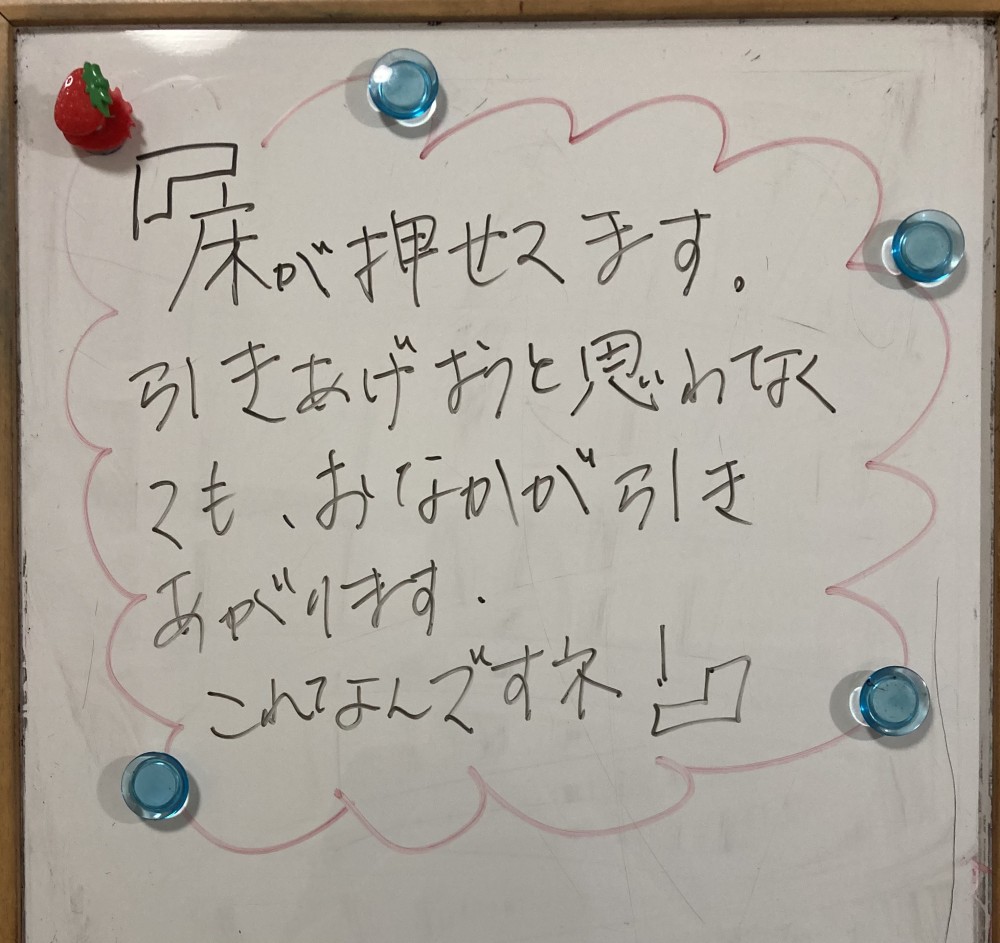 『床が押せてます。
引きあげようと思わなく
ても、おなかが引き
あがります.
これなんですネ!』